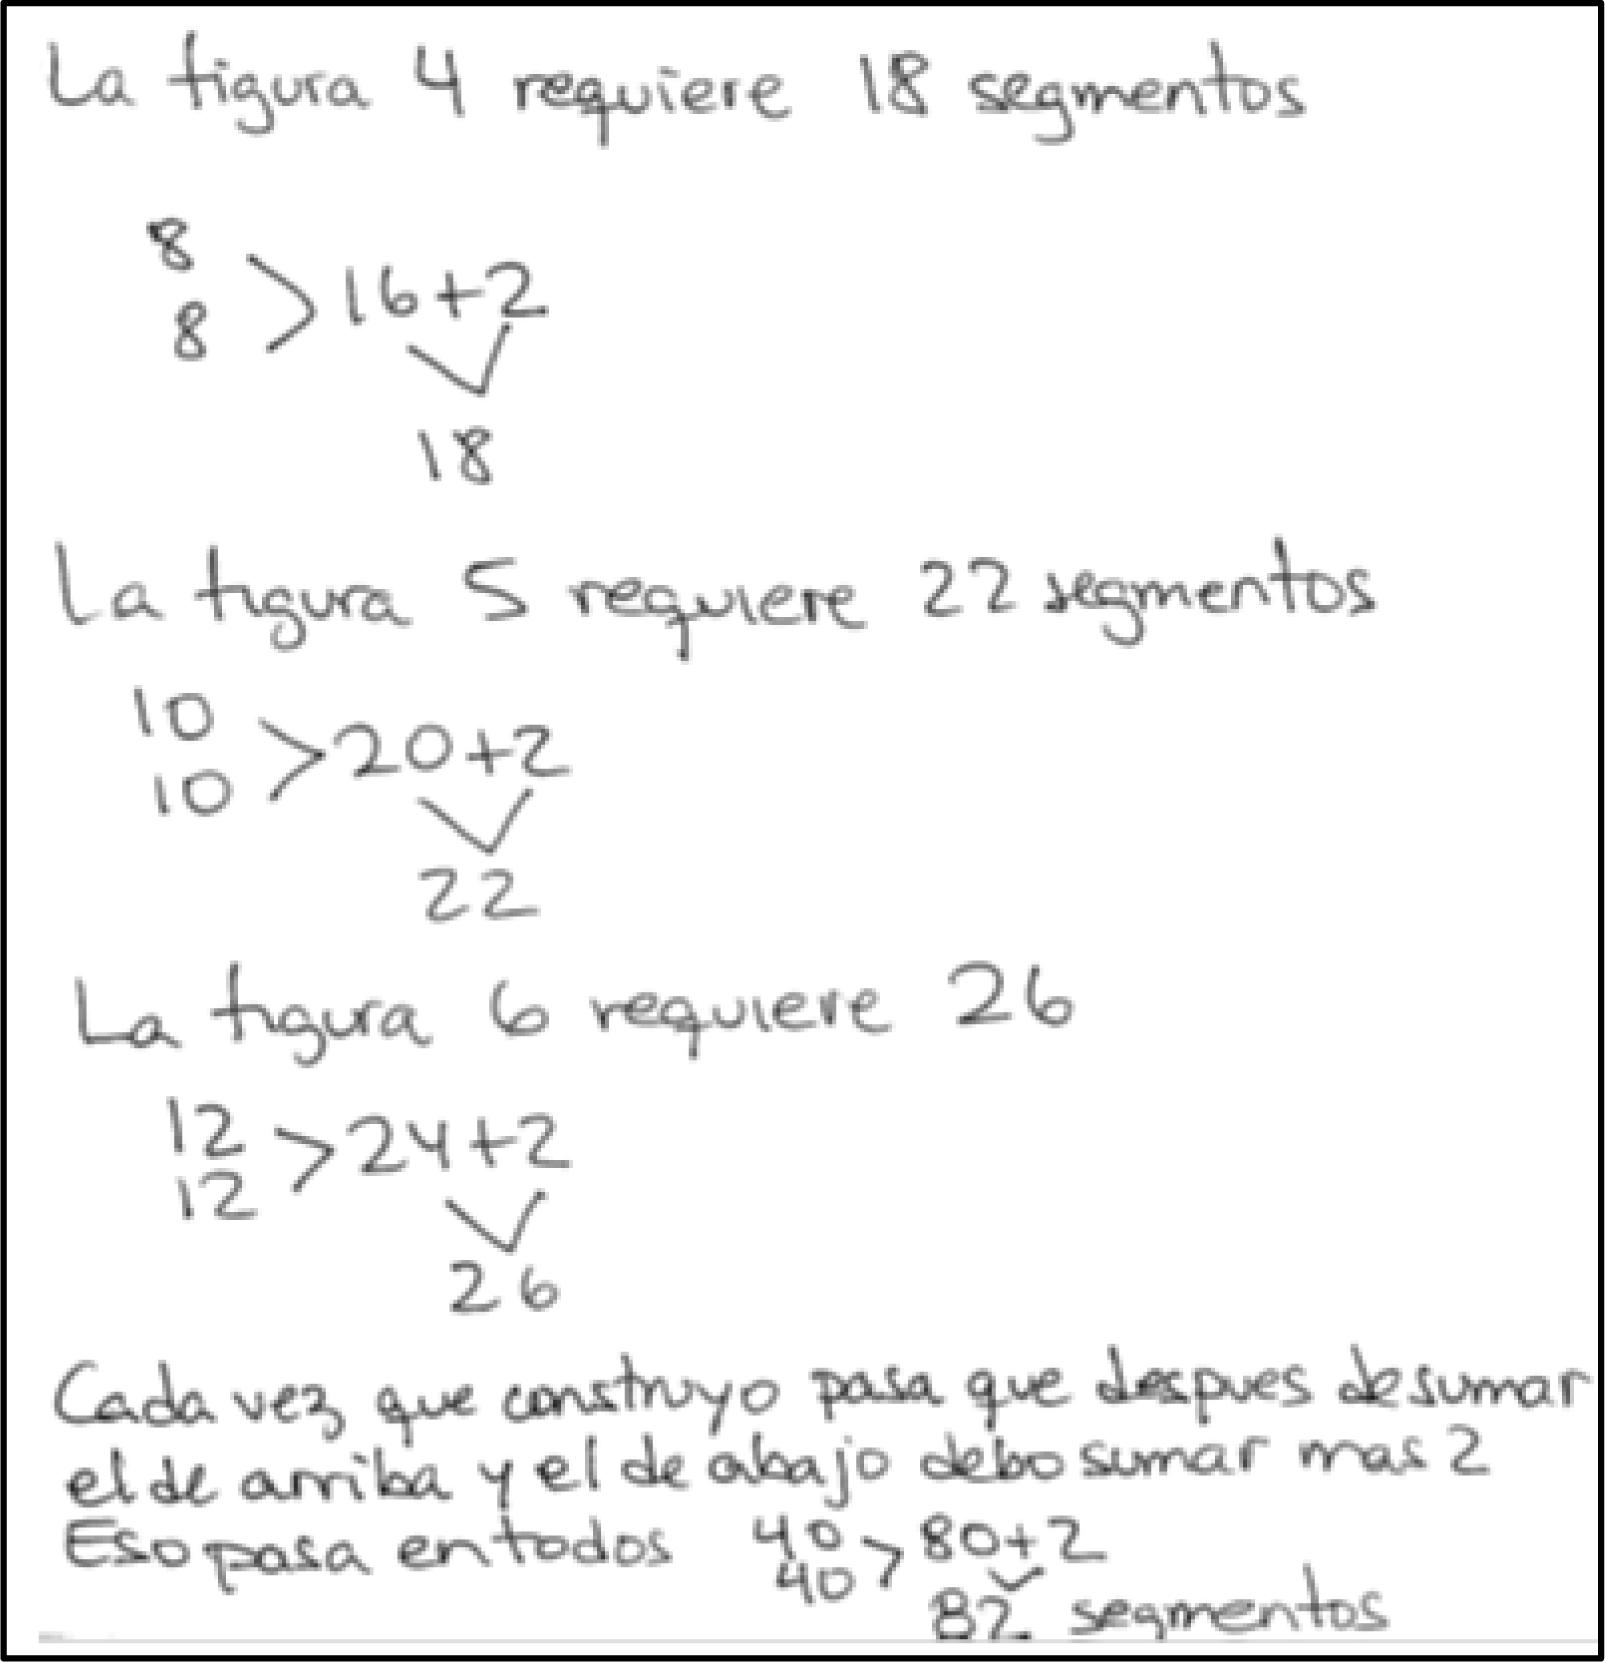 La figura 4 requiere 18 segmentos
8
8 > 16+2
18
La figura 5 requiere 22 segmentos
10
10 > 20+2
22
La figura 6 requiere 26
12
12 > 24+2
26
Cada vez que construyo pasa que despues de sumar
el de arriba y el de abajo debo sumar mas 2
Eso pasa en todos 40
40 > 80+2
82 segmentos